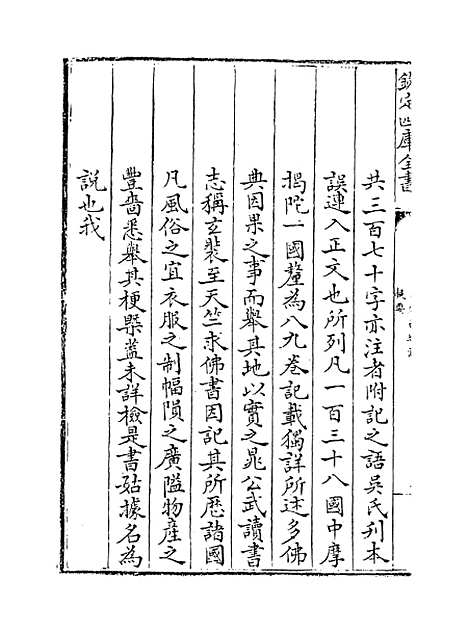 欽定四庫全書
提要
共三百七十字亦注者附記之語吳氏刊本
誤連入正文也所列凡一百三十八國中摩
揭陀一國釐為八九卷記載獨詳所述多佛
典因果之事而舉其地以實之晁公武讀書
志稱𤣥裝至天竺求佛書因記其所歷諸國
凡風俗之宜衣服之制幅隕之廣隘物產之
豐嗇悉舉其梗槩葢未詳檢是書姑據名為
說也我